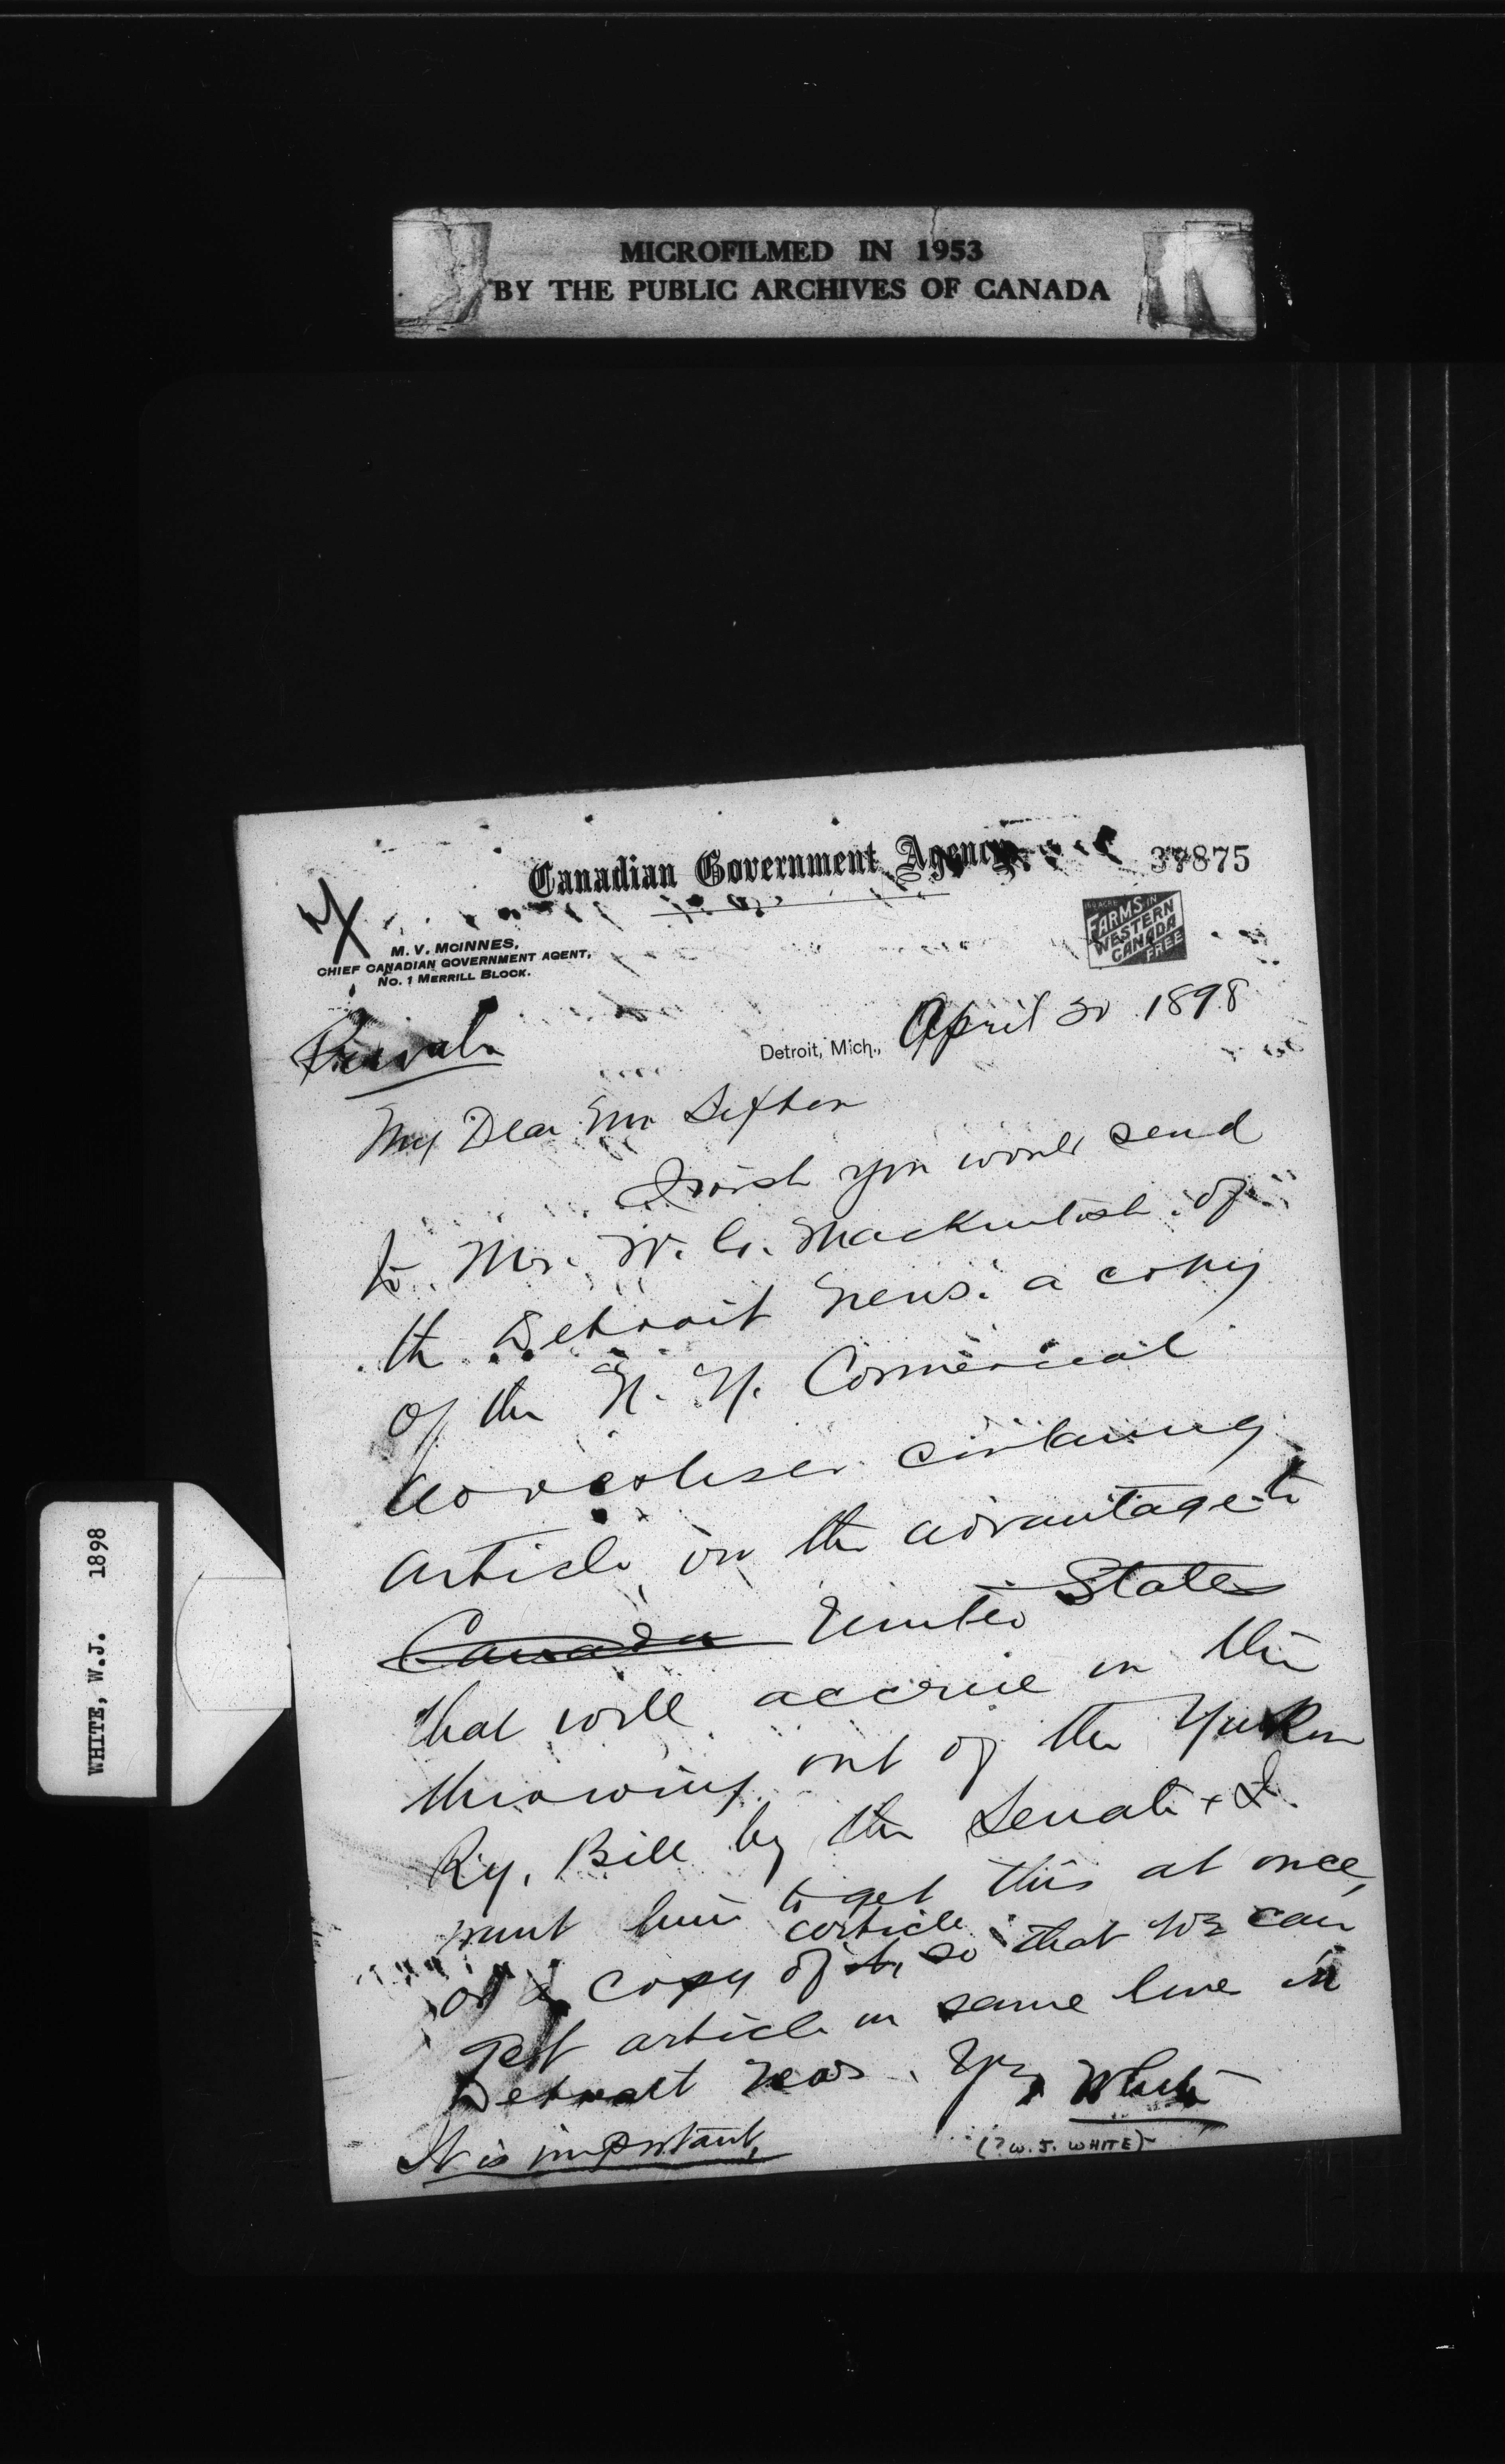 MICROFILMED IN 1953
BY THE PUBLIC ARCHIVES OF CANADA
Canadian Government Agency
37875
M. V. McINNES,
CHIEF CANADIAN GOVERNMENT AGENT,
No. 1 MERRILL BLOCK.
160 ACRE
FARMS IN
WESTERN
CANADA
FREE
Private
Detroit, Mich., April 30 1898
My Dear Mr Sifton
I wish you would send
to Mr. W. G. Mackintosh of
the Detroit News. a copy
of the N. Y. Commercial
Advertiser containing
article on the advantage to
Canada United States
that will accrue in the
throwing out of the Yukon
Ry. Bill by the Senate + I
want him to get this at once,
or a copy of it, article so that we can
get article in same line in
Detroit News. Yrs White
It is important,
(? W. J. WHITE)
WHITE, W.J. 1898